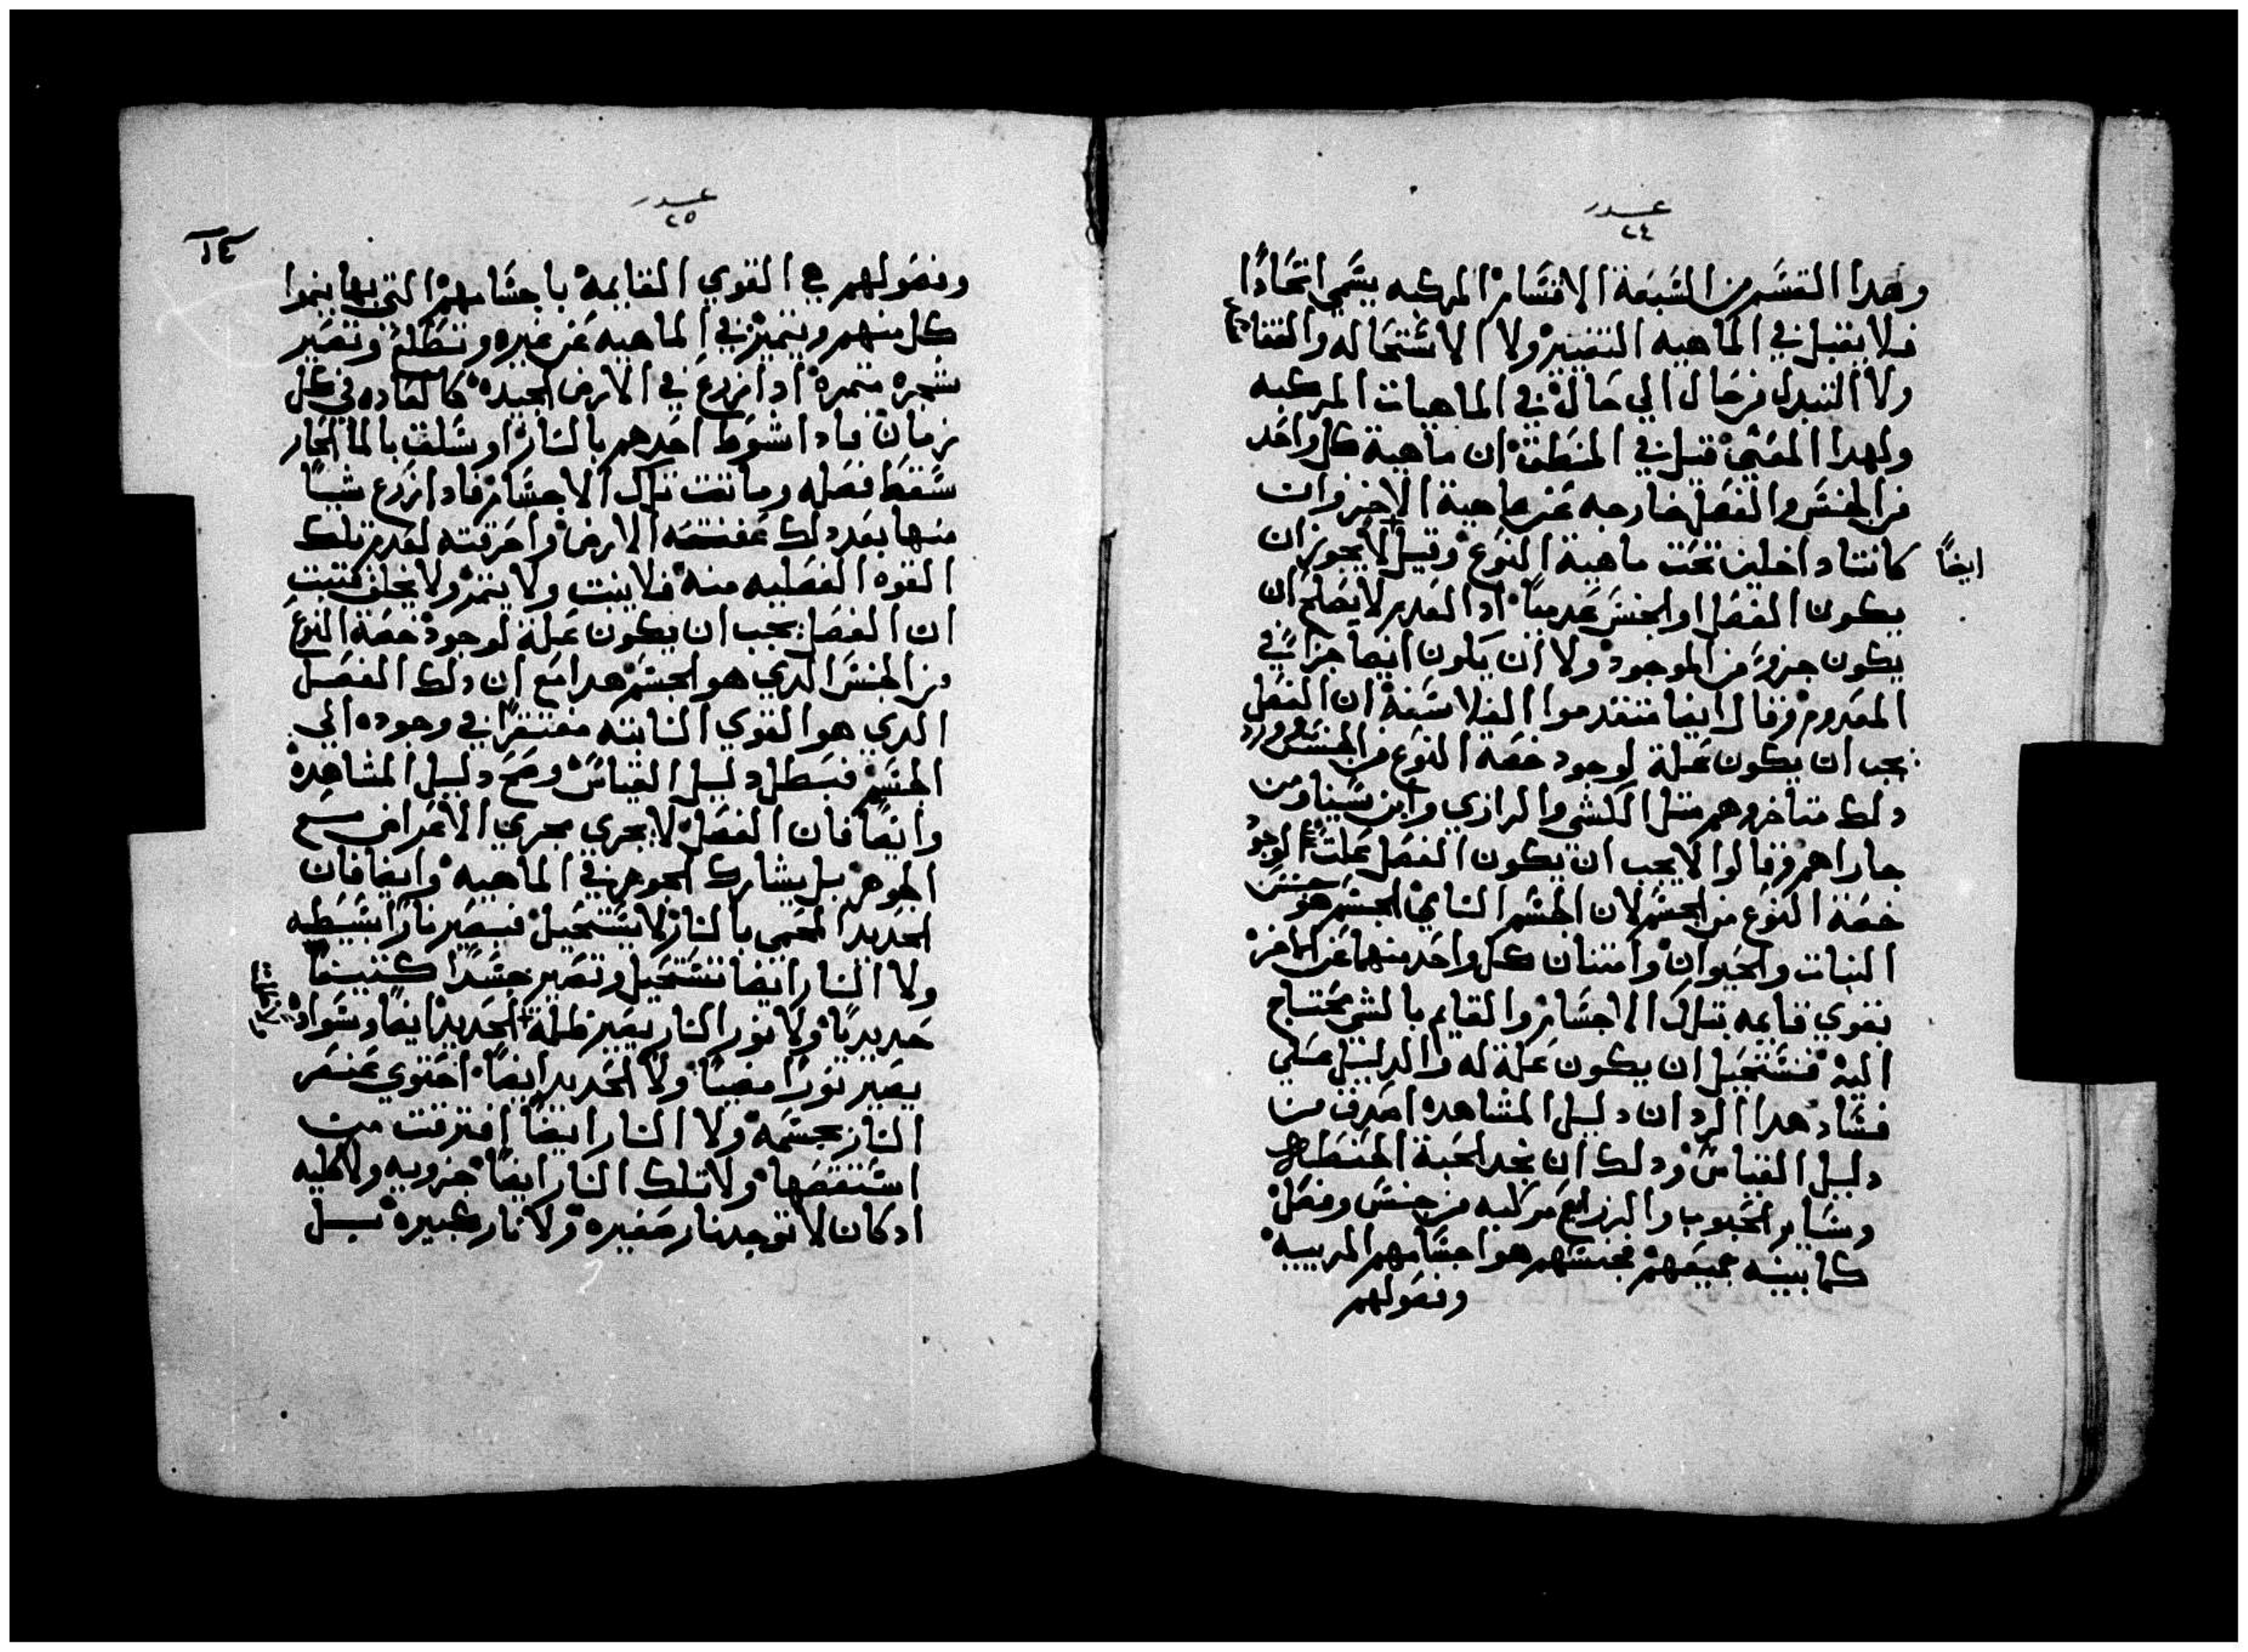 عدد
٢٤
وهدا القسم من السبعة الاقسام المركبه يسمي اتحادًا
فلا يقبل في الماهيه التغيير ولا الاستحاله والفساد
ولا التبدل من حال الي حال في الماهيات المركبه
ولهدا المعني قيل في المنطق ان ماهية كل واحد
من الجنس والفصل خارجه عن ماهية الاخر وان
كانتا داخلين تحت ماهية النوع وقيل لا يجوز ان
ايضًا
يكون الفصل او الجنس عدميًا اد العدم لا يصلح ان
يكون جزوً من الموجود ولا ان يكون ايضا جزاً في
المعدوم وقال ايضا متقدموا الفلاسفه ان الفصل
يجب ان يكون علة لوجود حصة النوع من الجنس ورد
دلك متاخروهم متل الكشي والرازي وابن سينا ومن
جاراهم وقالوا لا يجب ان يكون الفصل علت لوجود
حصة النوع من الجسم لان الجسم النامي الجسم هو جنس
النبات والحيوان وامتنان كل واحد منهما عن الاخر
بقوي قايمه بتلك الاجسام والقايم بالشي محتاج
اليه فيستحيل ان يكون علة له والدليل علي
فساد هدا الرد ان دليل المشاهده اصدق من
دليل القياس ودلك ان نجد الحبة الحنطه
وساير الحبوب والزرايع مركبه من جنس وفصل
كما بينه جميعهم فجنسهم هو اجسامهم المربيه
وفصولهم
عدد
٢٥
١٤
وفصولهم هي القوي القايمة باجسامهم التي بها ينموا
كل منهم ويتميز في الماهيه عن غيره وتطلع وتصير
شجره متمرة ادا زرع في الارض الجيده كالعاده في كل
زمان فادا شوط احدهم بالنار او سلق بالما الحار
سقط فصله وماتت تلك الاجسام فادا زرع شيًا
منها بعد دلك عفنته الارض واحرقته لعدم تلك
القوه الفصليه منه فلا ينبت ولا يتمر ولا يخلف فتبت
ان الفصل يجب ان يكون علة لوجود حصة النوع
من الجنس الدي هو الجسم هدا مع ان دلك الفصل
الدي هو القوي النابته مفتقرًا في وجوده الي
الجسم فبطل دليل القياس وصح دليل المشاهدة
وايضًا فان الفصل لا يجري مجري الاعراض مع
الجوهر بل يشارك الجوهر في الماهيه وايضا فان
الحديد المحمي بالنار لا يستحيل فيصير نارًا بسيطه
ولا النار ايضا تستحيل وتصير جسدًا كتيفًا
حديديًا ولا نور النار يصير ظلمة الحديد ايضًا وسواد
يصير نورًا مضيًا ولا الحديد ايضًا احتوي عنصر
النار بجسمه ولا النار ايضًا افترقت من
استقصها ولا تلك النار ايضًا جزويه ولا كليه
اد كان لا توجد نار صغيره ولا نار كبيره بل